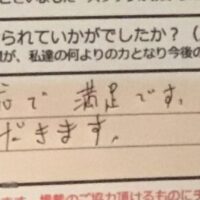 られていかがでしたか？（
が、私達の何よりの力となり今後の
で 満足です。
だきます。
掲載のご協力頂けるものにチ